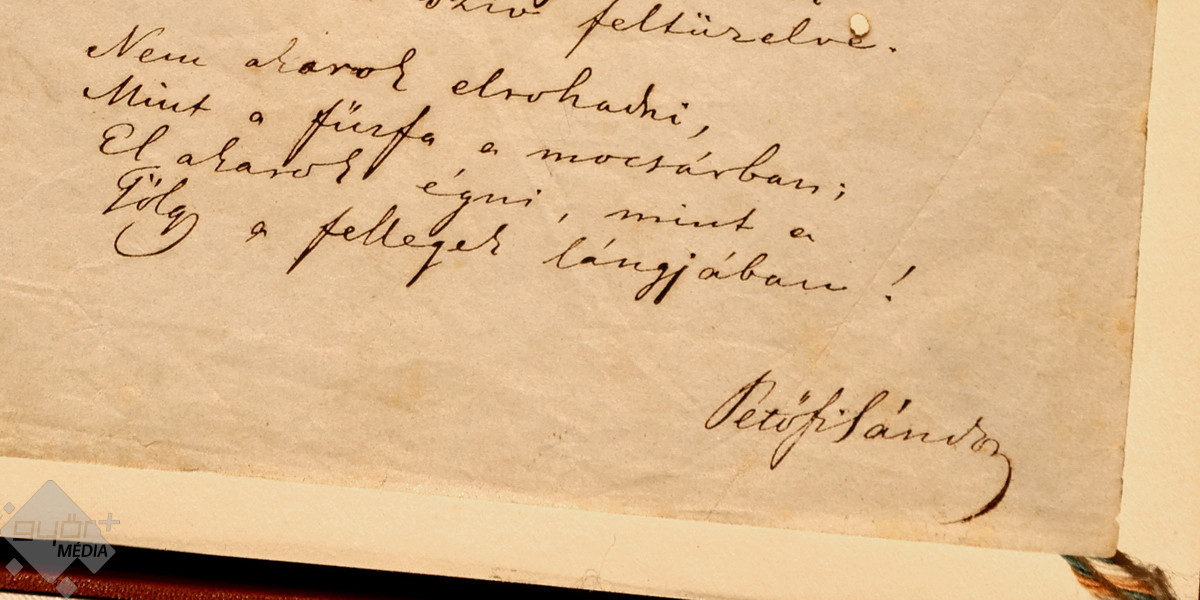 szív feltüzelve.
Nem akarok elrohadni,
Mint a fűzfa a mocsárban;
El akarok égni, mint a
Tölgy a fellegek lángjában!
Petőfi Sándor
győr+
MÉDIA